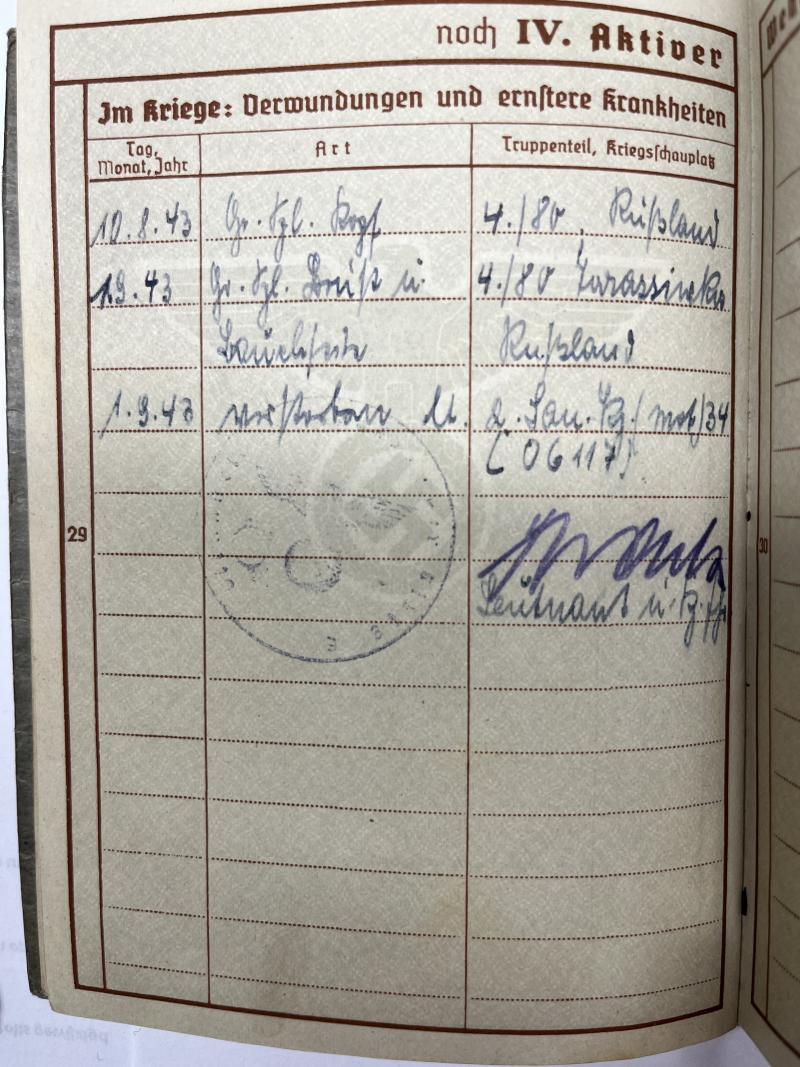 noch IV. Aktiver
Im Kriege: Verwundungen und ernstere Krankheiten
Tag, Monat, Jahr Art Truppenteil, Kriegsschauplatz
10.8.43 Gr. Spl. Kopf 4./80. Rußland
1.9.43 Gr. Spl. Brust u. 4./80 Tarassiwka
Bauchseite Rußland
1.9.43 verstorben lt. 2. San. Kp./mot/34
(06117)
29
30
Leutnant u. Kp.